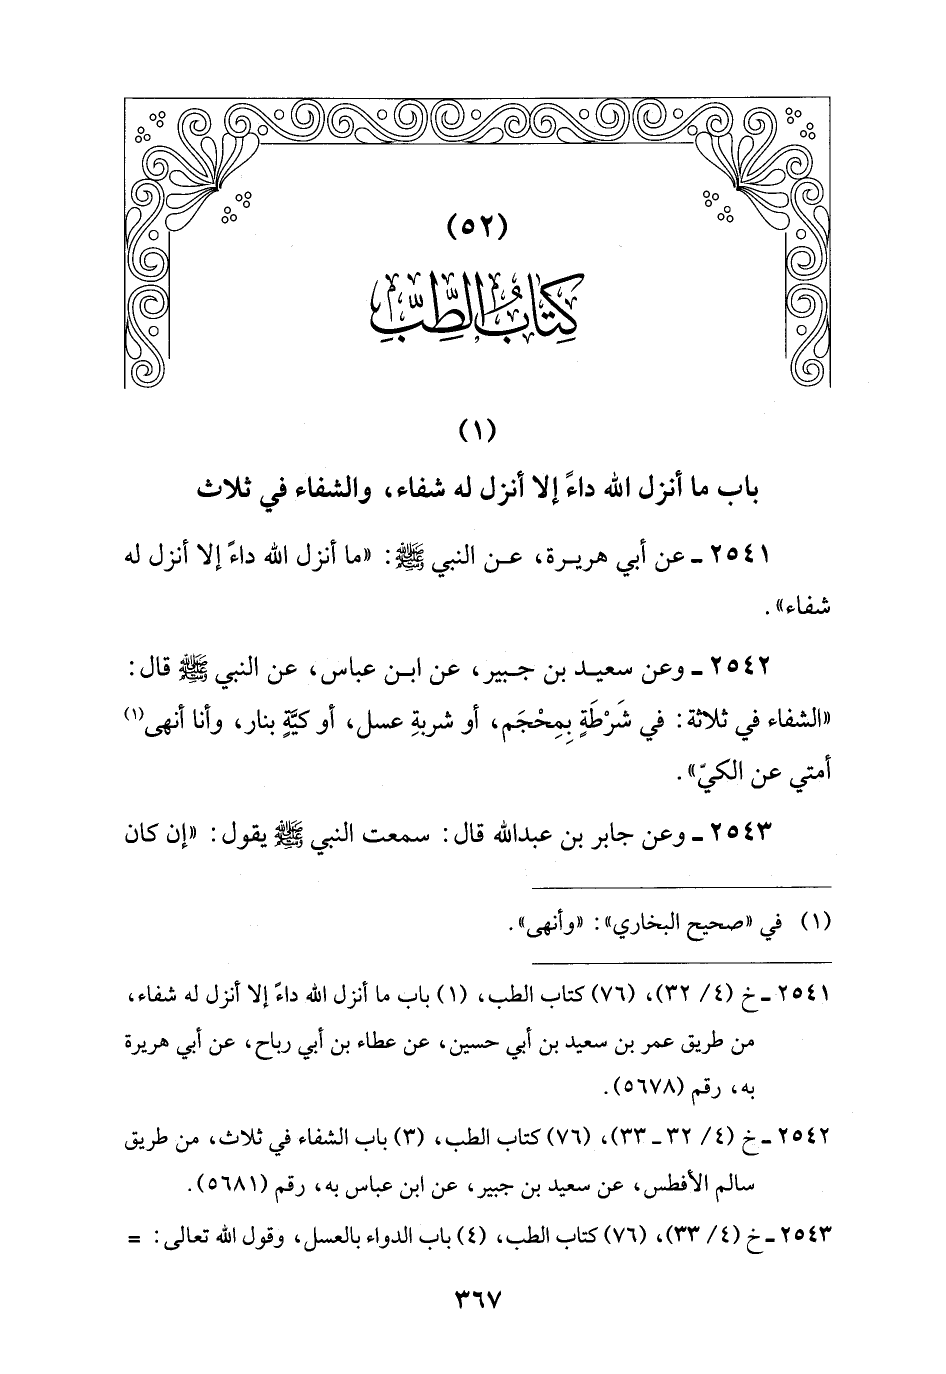 (٥٢)
كِتَابُ الطِّبِّ
(١)
باب ما أنزل الله داءً إلا أنزل له شفاء، والشفاء في ثلاث
٢٥٤١ ـ عن أبي هريـرة، عـن النبي ﷺ: «ما أنزل الله داءً إلا أنزل له
شفاء».
٢٥٤٢ ـ وعن سعيـد بن جـبير، عن ابـن عباس، عن النبي ﷺ قال:
«الشفاء في ثلاثة: في شَرْطَةٍ بِمِحْجَم، أو شربةِ عسل، أو كيَّةٍ بنار، وأنا أنهى(١)
أمتي عن الكيّ».
٢٥٤٣ ـ وعن جابر بن عبدالله قال: سمعت النبي ﷺ يقول: «إن كان
(١) في «صحيح البخاري»: «وأنهى».
٢٥٤١ ـ خ (٤/ ٣٢)، (٧٦) كتاب الطب، (١) باب ما أنزل الله داءً إلا أنزل له شفاء،
من طريق عمر بن سعيد بن أبي حسين، عن عطاء بن أبي رباح، عن أبي هريرة
به، رقم (٥٦٧٨).
٢٥٤٢ ـ خ (٤/ ٣٢ ـ ٣٣)، (٧٦) كتاب الطب، (٣) باب الشفاء في ثلاث، من طريق
سالم الأفطس، عن سعيد بن جبير، عن ابن عباس به، رقم (٥٦٨١).
٢٥٤٣ ـ خ (٤/ ٣٣)، (٧٦) كتاب الطب، (٤) باب الدواء بالعسل، وقول الله تعالى: =
٣٦٧